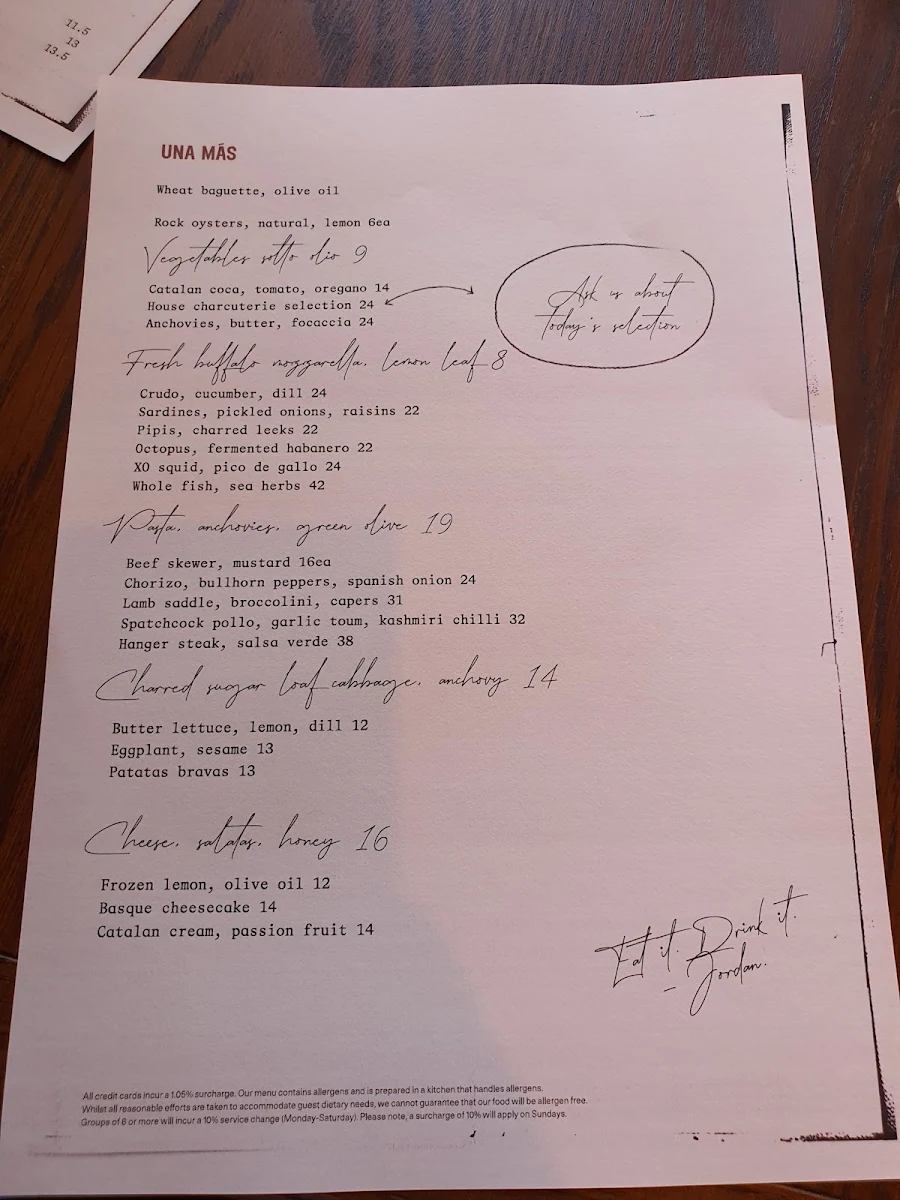 11.5
13
13.5
UNA MÁS
Wheat baguette, olive oil
Rock oysters, natural, lemon 6ea
Vegetables sotto olio 9
Catalan coca, tomato, oregano 14
House charcuterie selection 24
Anchovies, butter, focaccia 24
Ask us about
today's selection
Fresh buffalo mozzarella, lemon leaf 8
Crudo, cucumber, dill 24
Sardines, pickled onions, raisins 22
Pipis, charred leeks 22
Octopus, fermented habanero 22
XO squid, pico de gallo 24
Whole fish, sea herbs 42
Pasta, anchovies, green olive 19
Beef skewer, mustard 16ea
Chorizo, bullhorn peppers, spanish onion 24
Lamb saddle, broccolini, capers 31
Spatchcock pollo, garlic toum, kashmiri chilli 32
Hanger steak, salsa verde 38
Charred sugar loaf cabbage, anchovy 14
Butter lettuce, lemon, dill 12
Eggplant, sesame 13
Patatas bravas 13
Cheese, salatas, honey 16
Frozen lemon, olive oil 12
Basque cheesecake 14
Catalan cream, passion fruit 14
Eat it. Drink it.
– Jordan.
All credit cards incur a 1.05% surcharge. Our menu contains allergens and is prepared in a kitchen that handles allergens.
Whilst all reasonable efforts are taken to accommodate guest dietary needs, we cannot guarantee that our food will be allergen free.
Groups of 6 or more will incur a 10% service change (Monday-Saturday). Please note, a surcharge of 10% will apply on Sundays.